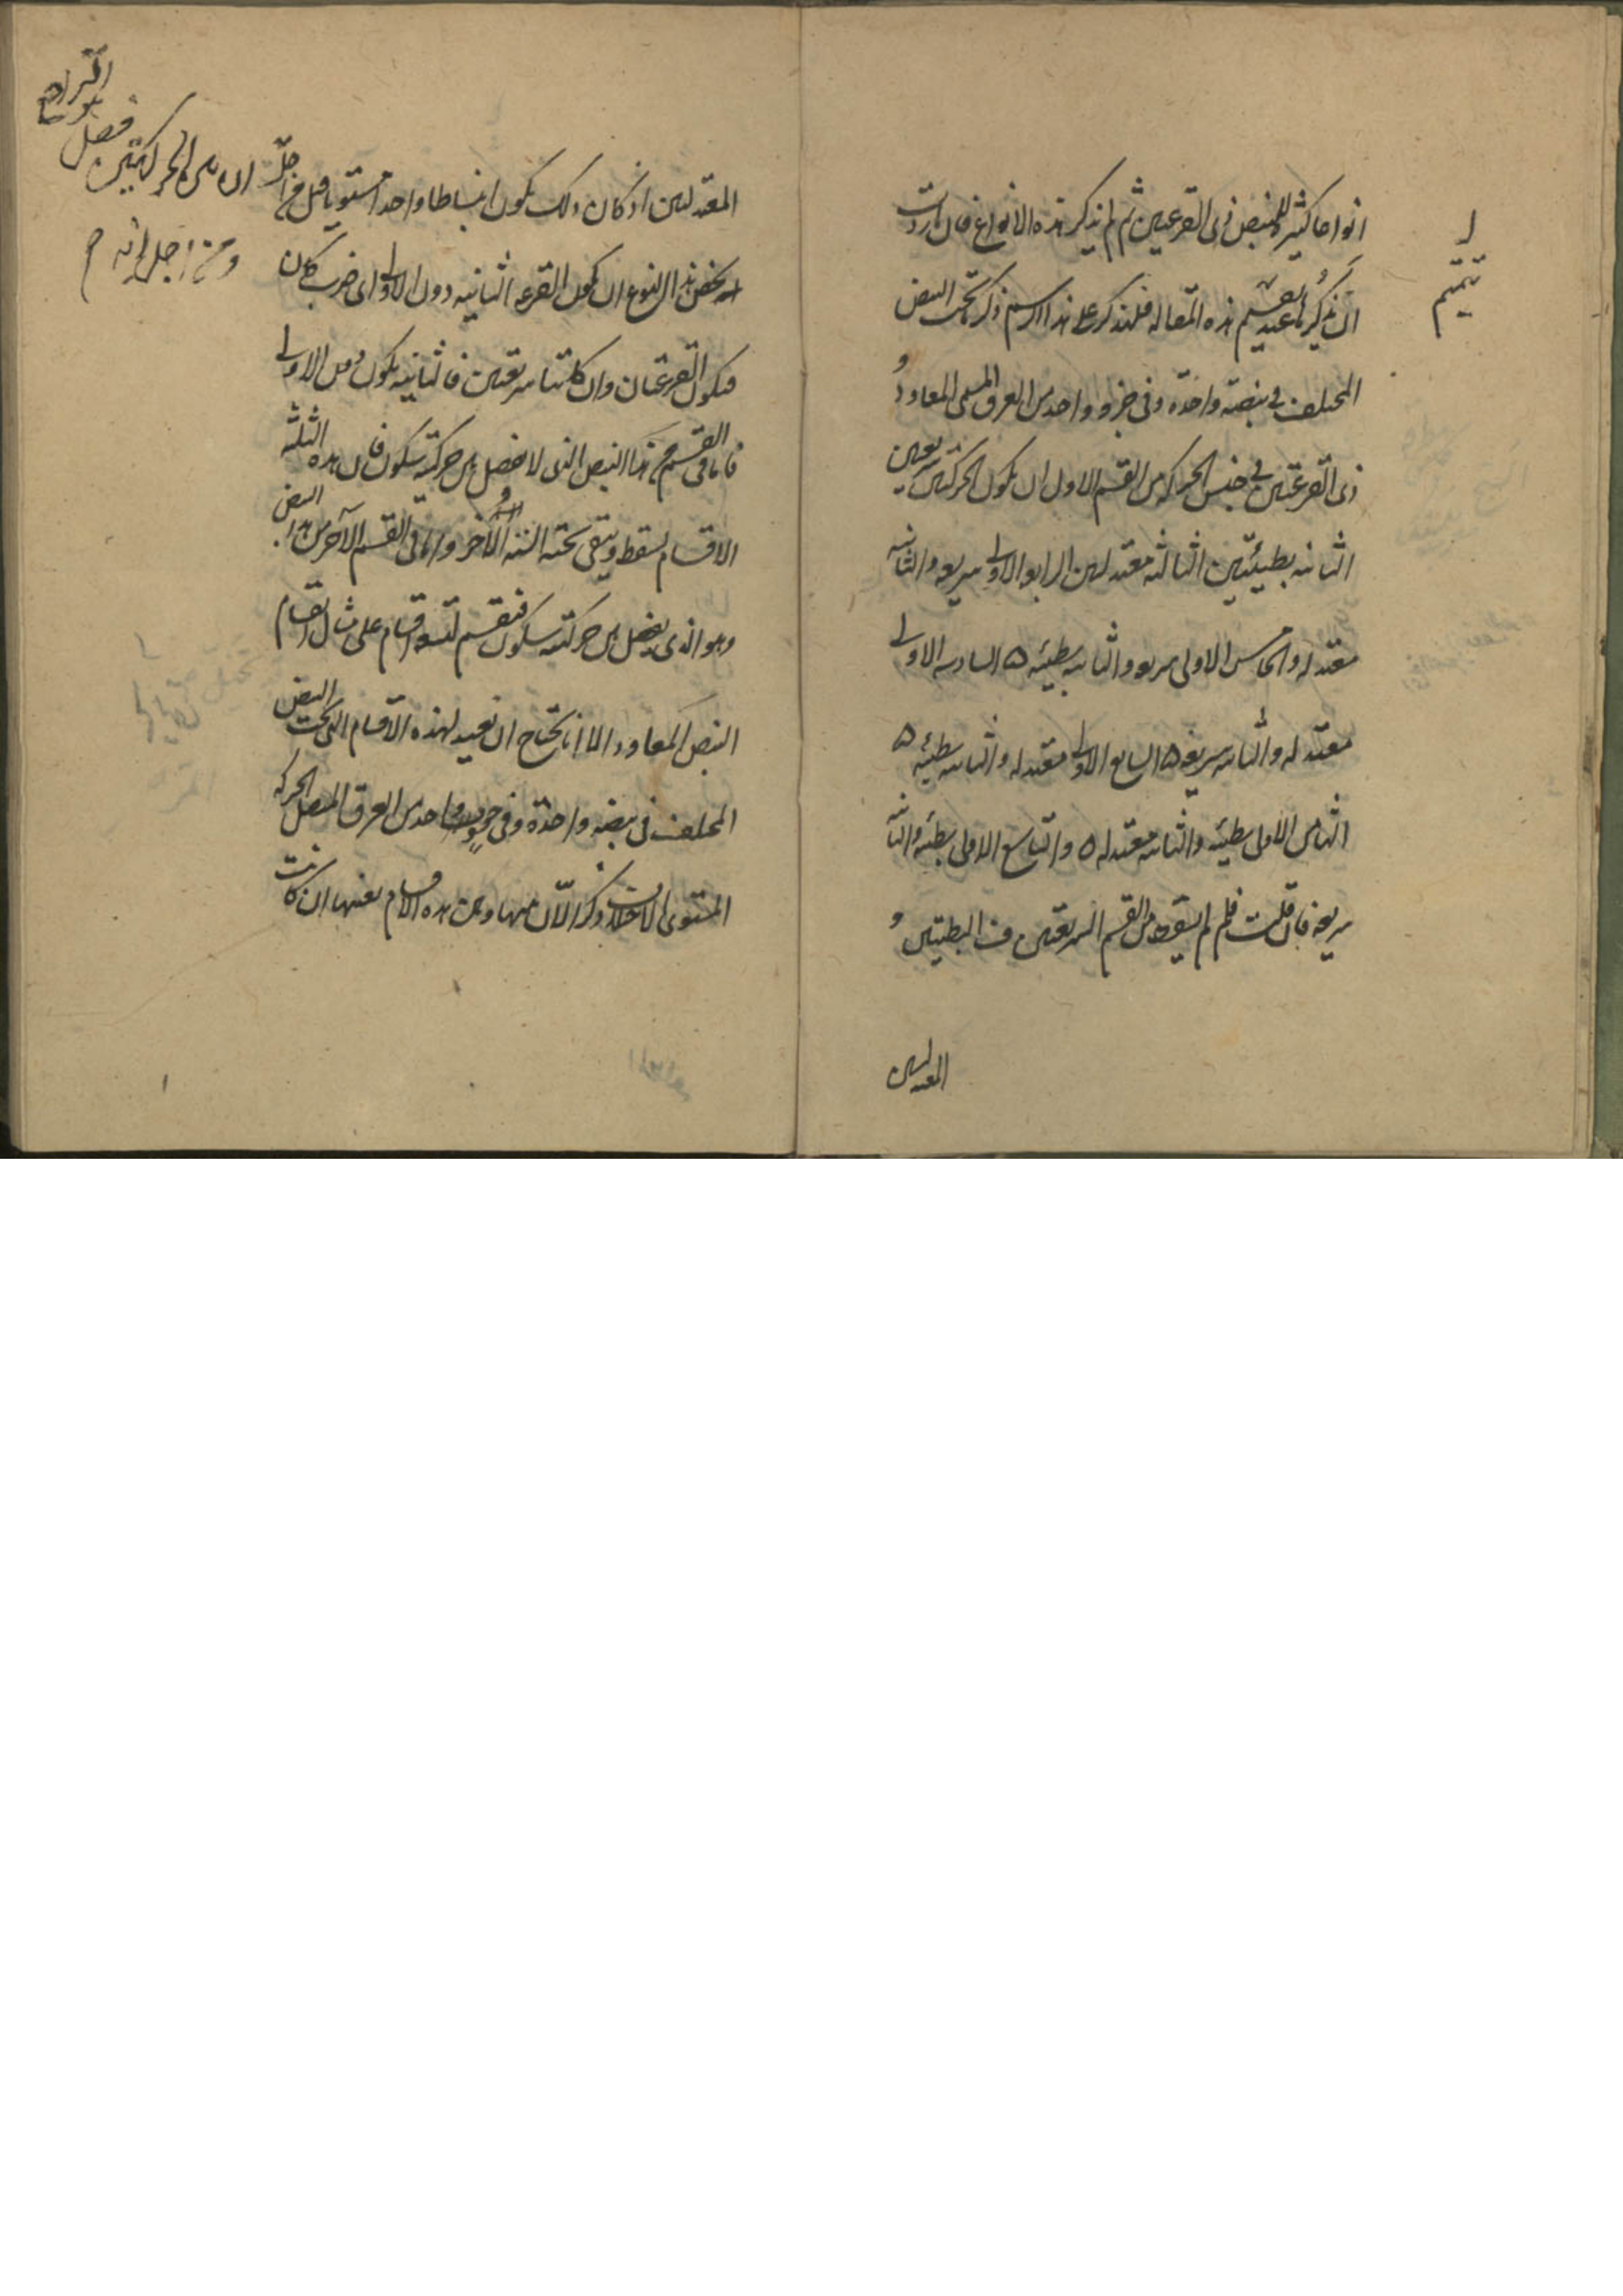 انواعا كثيرة للنبض ذى القرعتين ثم لم يذكر هذه الانواع فان اردت
ان نذكرها عند تقسيم هذه المقالة فلنذكر على هذا الرسم ذكر ما تحت النبض
المختلف فى نبضة واحدة وفى جزو واحد من العرق المسمى المعاود و
ذى القرعتين فى جنس الحركة من القسم الاول ان يكون الحركتين سريعتين
الثانية بطيئتين الثالثة معتدلتين الرابع الاولى سريعة والثانية
معتدلة والخامس الاولى سريعة والثانية بطيئة ٥ السادسة الاولى
معتدلة والثانية سريعة ٥ السابع الاولى معتدلة والثانية بطيئة ٥
الثامن الاولى بطيئة والثانية معتدلة ٥ والتاسع الاولى بطيئة والثانية
سريعة فان قلت فلم لم يسقط من القسم السريعتين والبطيئتين و
المعتدلتين
تتميم
المعتدلتين اذ كان ذلك يكون انبساطا واحدا مستويا قيل من اجل
ان بين الحركتين
فصل
ومن اجل انه
يخص هذا النوع ان يكون القرعة الثانية دون الاولى اى ضرب كان
فيكون القرعتان وان كانتا سريعتين فالثانية يكون دون الاولى
فاما فى القسم من هذا النبض الذى لا يفصل بين حركتيه سكون فان هذه الثلثة
الاقسام يسقط ويبقى تحته الستة الاخر واما فى القسم الآخر من هذا النبض
وهو الذى يفصل بين حركتيه سكون فينقسم لتسعة اقسام على مثال اقسام
النبض المعاود الا انا نحتاج ان نعيد لهذه الاقسام التى تحت النبض
المختلف فى نبضة واحدة وفى جزو واحد من العرق المتصل الحركة
المستوى الاختلاف ذكرا الآن منها ومن هذه الاقسام بعينها ان كانت